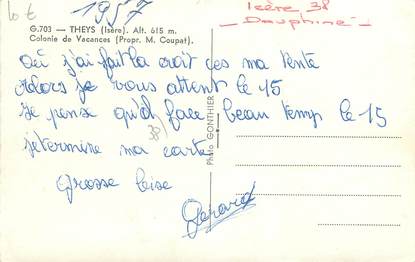 10 €
1957
Isère 38
- Dauphiné -
G.703 — THEYS (Isère). Alt. 615 m.
Colonie de Vacances (Propr. M. Coupat).
où j'ai fait la croit ces ma tente
Alors je vous attent le 15
Je pense qu'il face beau temp le 15
38
jetermine ma carte
Grosse bise
Gérard
Photo GONTHIER